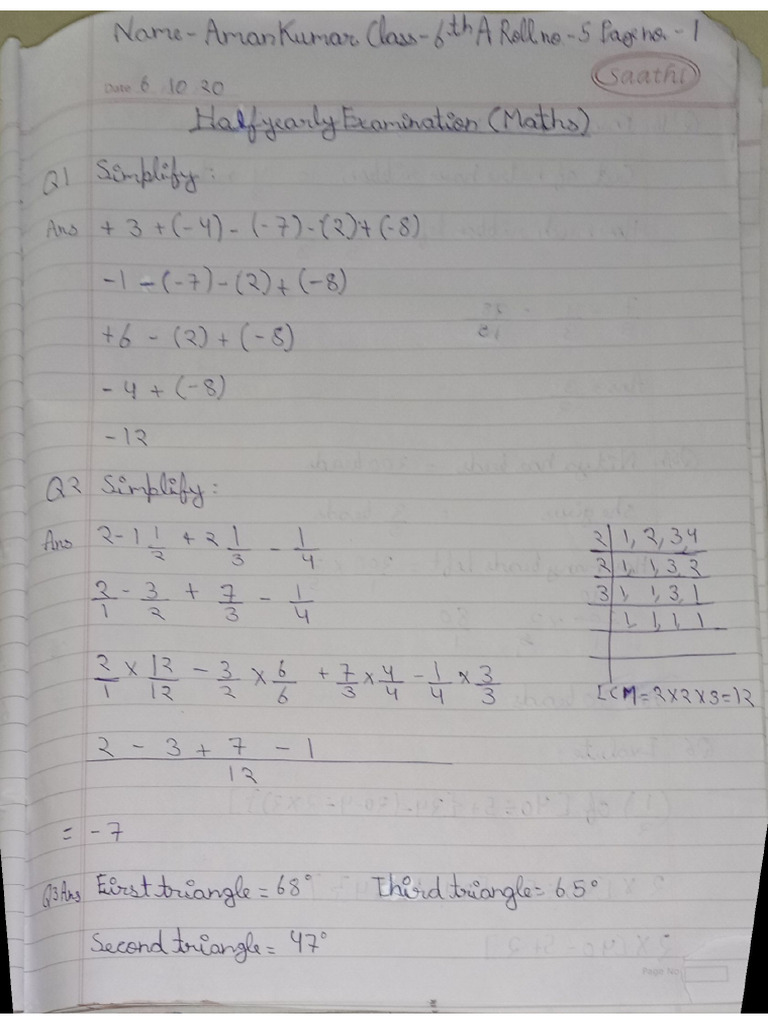 Name - Aman Kumar Class - 6th A Roll no - 5 Page no. - 1
Saathi
Date 6 10 20
Half yearly Examination (Maths)
Q1 Simplify :
Ans + 3 + (-4) - (-7) - (2) + (-8)
-1 - (-7) - (2) + (-8)
+6 - (2) + (-8)
- 4 + (-8)
-12
Q2 Simplify :
Ans 2 - 1 1/2 + 2 1/3 - 1/4
2/1 - 3/2 + 7/3 - 1/4
2/1 × 12/12 - 3/2 × 6/6 + 7/3 × 4/4 - 1/4 × 3/3
2 - 3 + 7 - 1
12
= -7
2 | 1, 2, 3, 4
2 | 1, 1, 3, 2
3 | 1, 1, 3, 1
| 1, 1, 1, 1
LCM = 2×2×3 = 12
Q3 Ans First triangle = 68° Third triangle = 65°
Second triangle = 47°
Page No